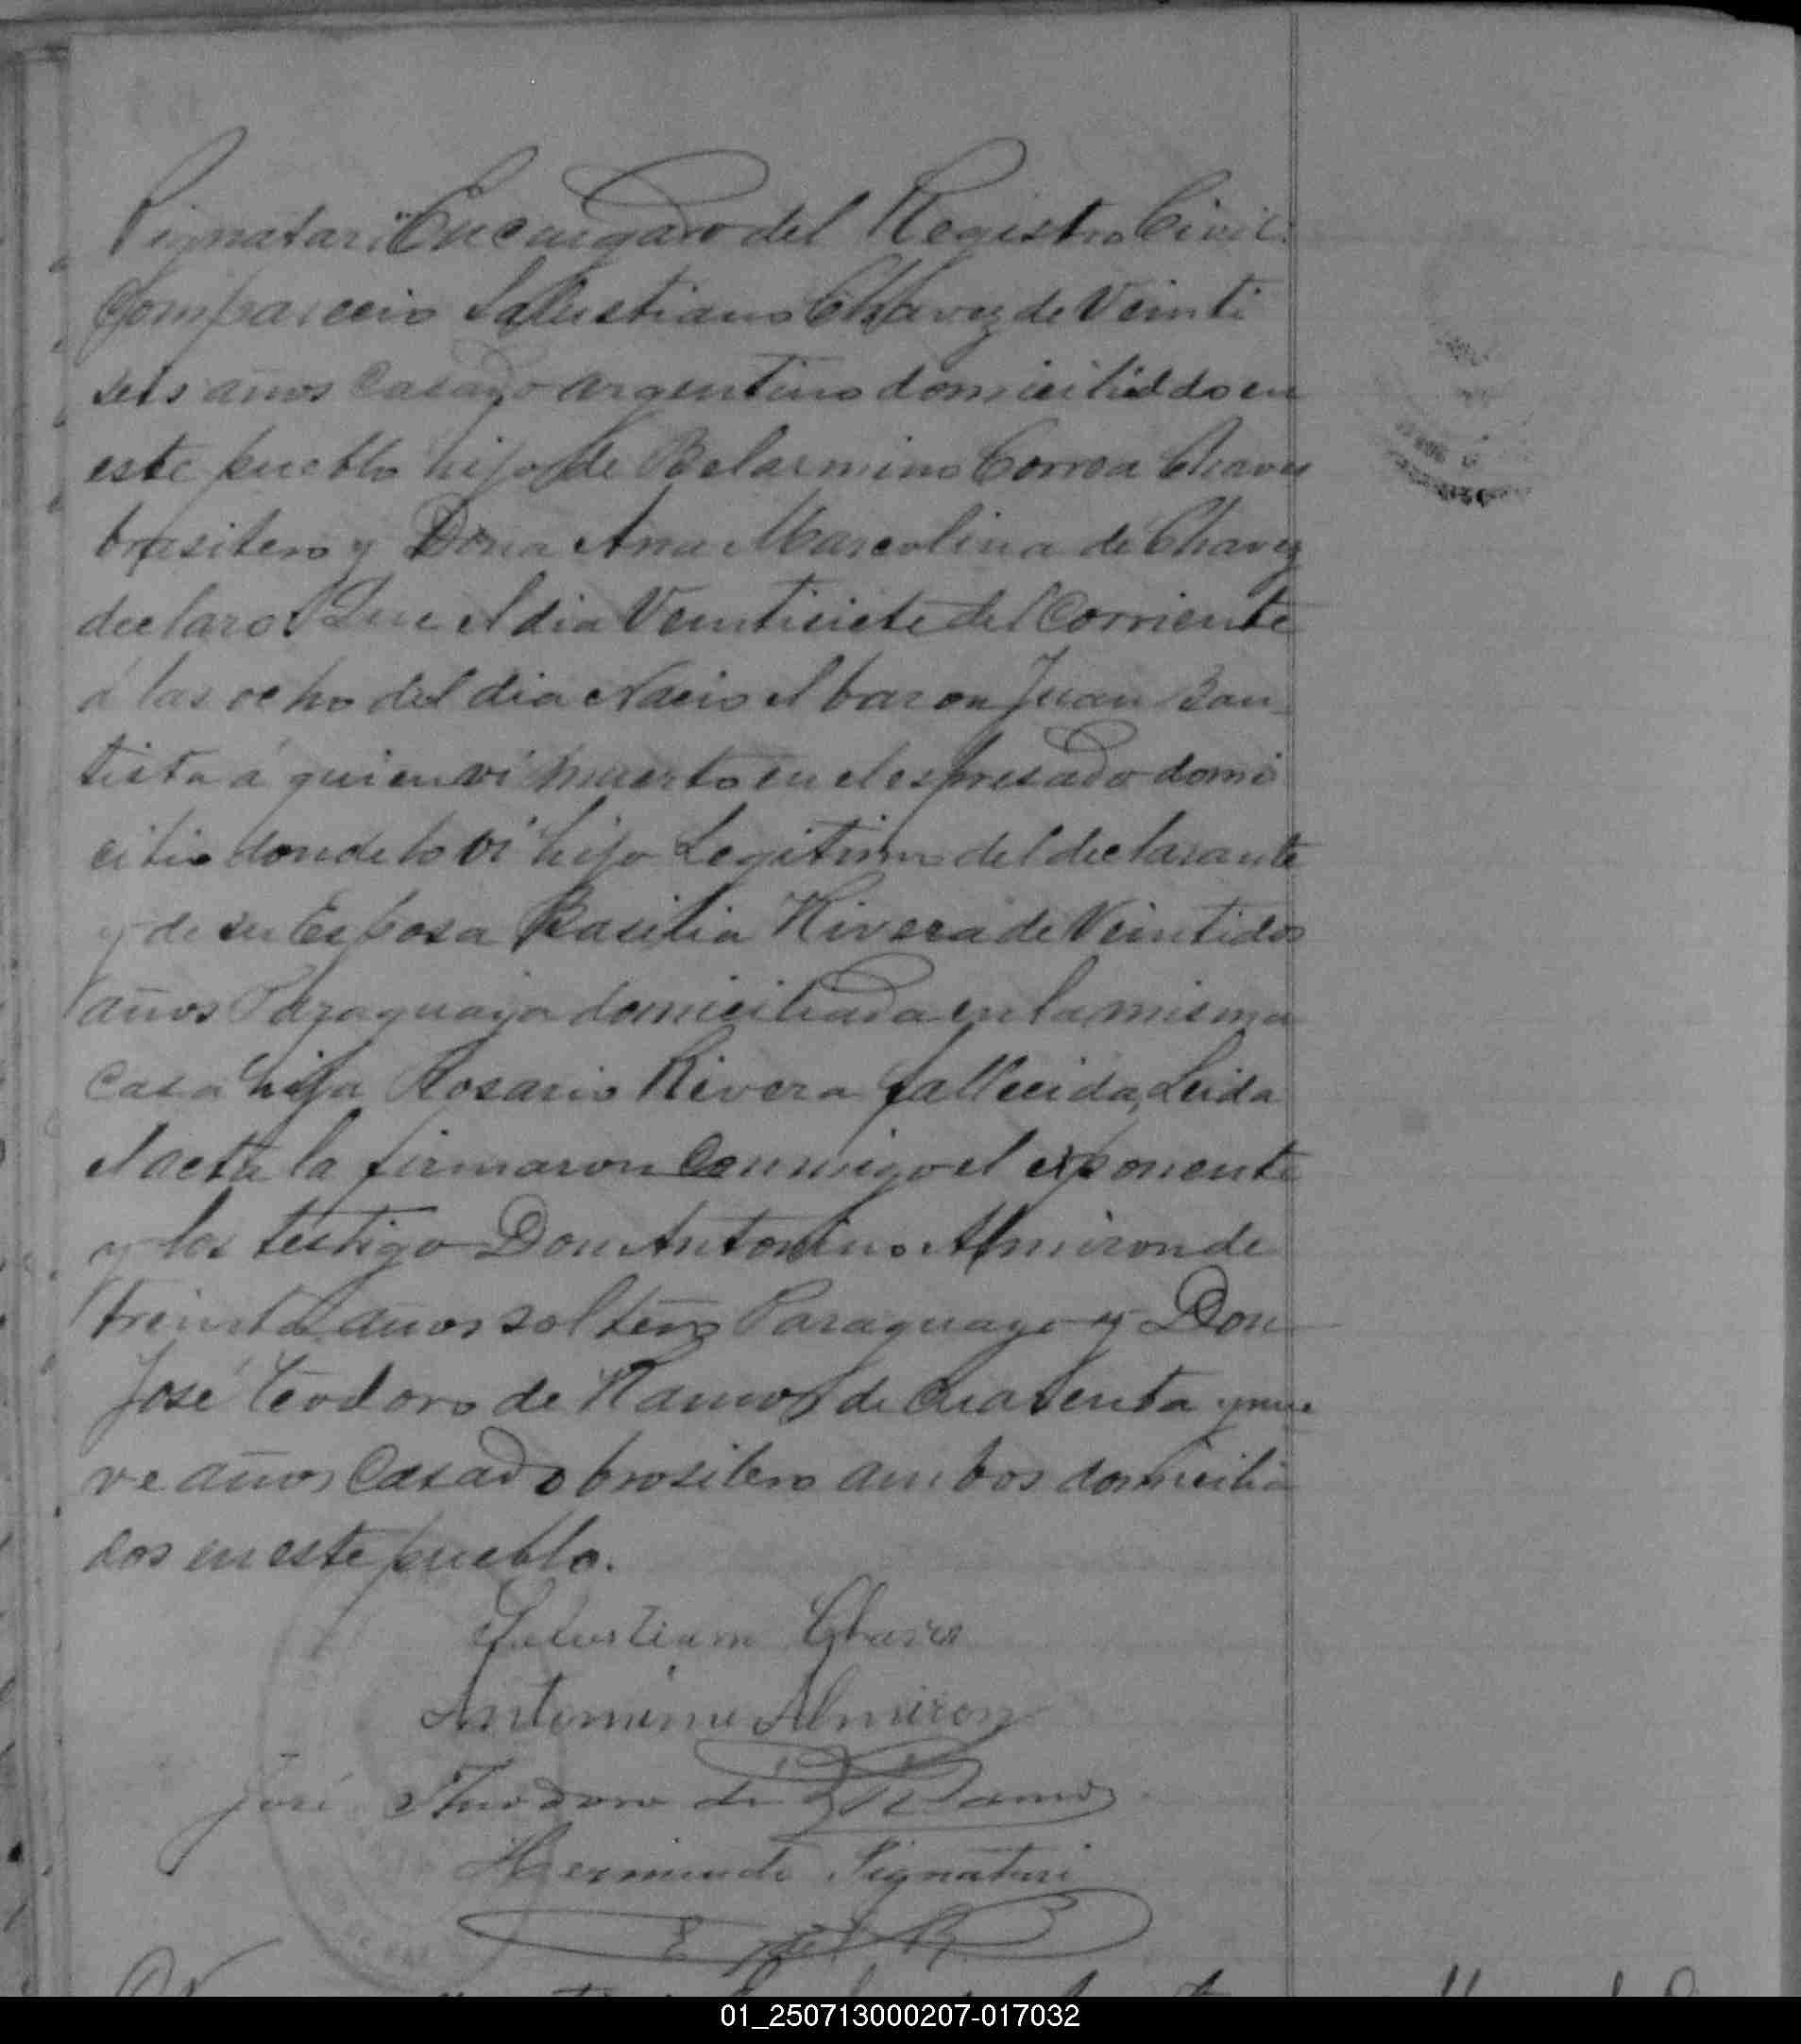 Pignatari Encargado del Registro Civil
Comparecio Salustiano Chavez de Veinti
seis años Casado argentino domiciliado en
este pueblo hijo de Belarmino Correa Chaves
brasilero y Dona Ana Marcolina de Chavez
declaro: Que el dia Veintisiete del Corriente
á las ocho del dia Nacio el baron Juan Bau
tista á quien vi muerto en el espresado domi
cilio donde lo vi hijo Legitimo del declarante
y de su Esposa Basilia Rivera de Veintidos
años Paraguaya domiciliada en la misma
Casa hija Rosario Rivera fallecida, Leida
el acta la firmaron Conmigo el exponente
y los testigo Don Antonino Almiron de
treinta años soltero Paraguayo y Don
José Teodoro de Ramos de Cuarenta y nue
ve años Casado brasilero ambos domicilia
dos en este pueblo.
Salustiano Chaves
Antonino Almiron
José Theodoro de Ramos
Pignatari
01_250713000207-017032